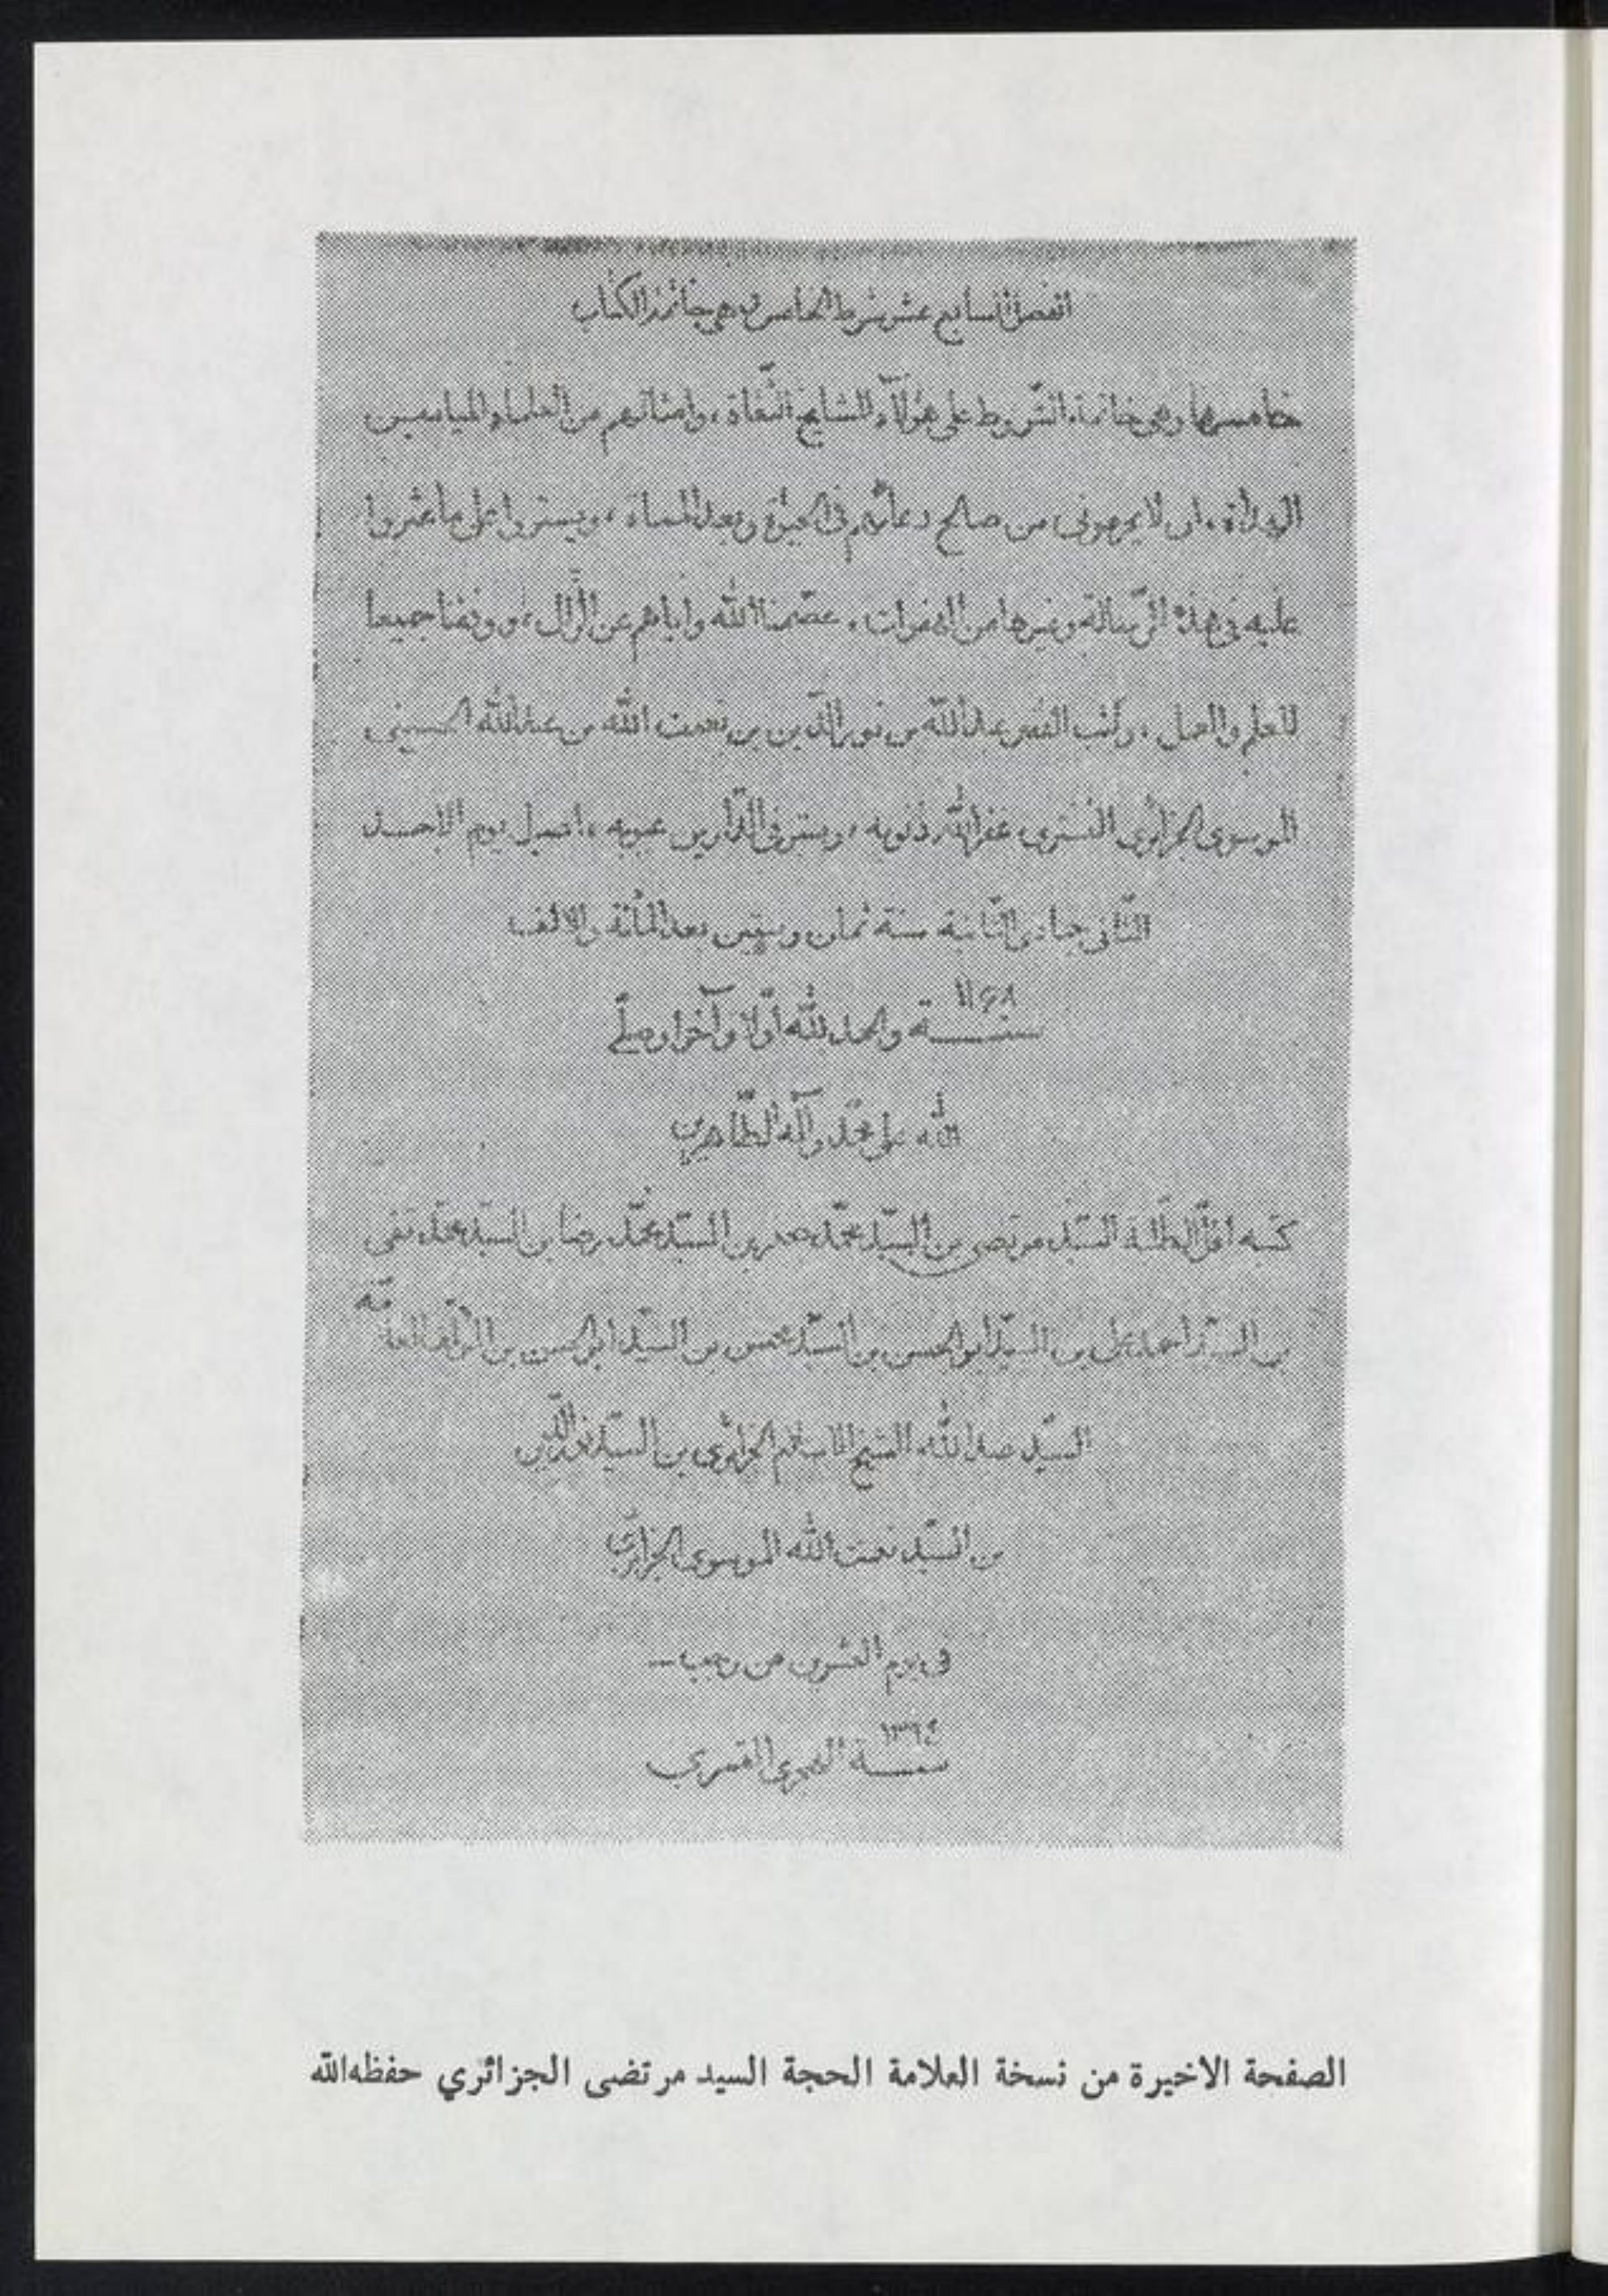 الفصل السابع عشر شرط الخامس وهي خاتمة الكتاب
خامسها وهي خاتمة الشروط على هؤلآء المشايخ الثقاة، وامثالهم من العلماء المياميين
الهداة، ان لا يمحوني من صالح دعائهم في الحيوة وبعد المماة، ويستروا على ما عثروا
عليه في هذه الرّسالة وغيرها من الهفوات، عصّمنا الله واياهم عن الزّلل، ووفقنا جميعا
للعلم والعمل، وكتب الفقير عبد الله بن نور الدّين بن نعمت الله بن عبد الله الحسيني
الموسوي الجزائري التستري، غفر الله ذنوبه، وستر في الدّارين عيوبه، اصيل يوم الاحد
الثّاني جمادى الثّانية سنة ثمان وستين بعد المائة والالف
١١۶٨
سنة والحمد لله اوّلا وآخرا وصلّى
الله على محمّد وآله الطّاهرين
كتبه اقلّ الطّلبة السيّد مرتضى بن السيّد محمّد جعفر بن السيّد محمّد رضا بن السيّد محمّد تقي
بن السيّد احمد علي بن السيّد ابو الحسن بن السيّد محسن بن السيّد ابو الحسن بن المؤلّف العلّامة
السيّد عبد الله الشيخ الاسلام الجزائري بن السيّد نور الدّين
بن السيّد نعمت الله الموسوي الجزائري
في يوم العشرين من رجب
١٣٦٤
سنة الهجري القمري
الصفحة الاخيرة من نسخة العلامة الحجة السيد مرتضى الجزائري حفظه الله